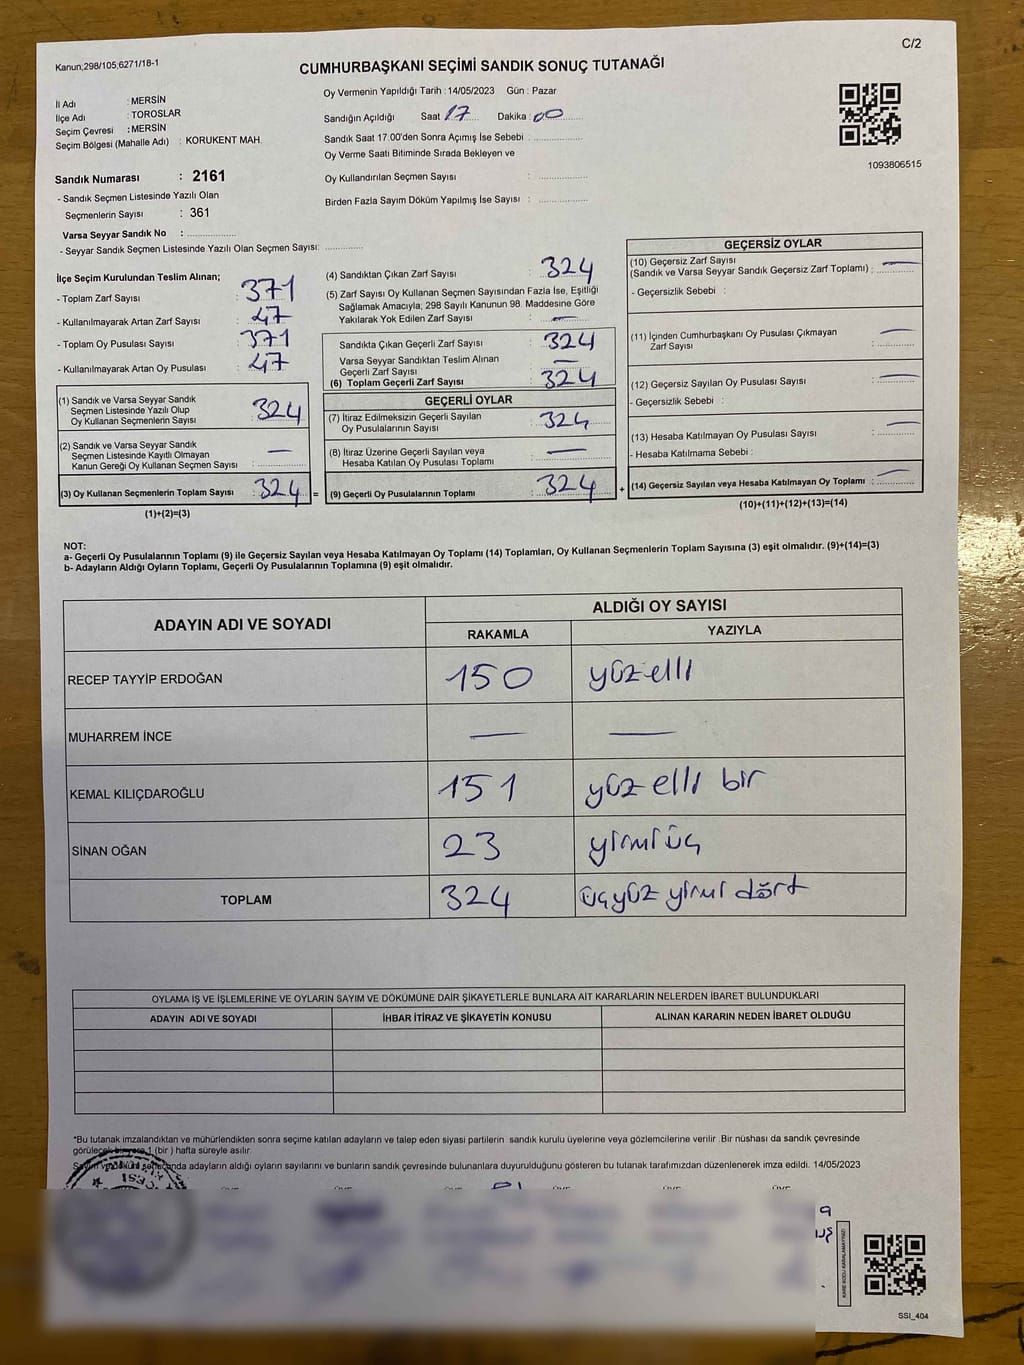 C/2
Kanun;298/105;6271/18-1
CUMHURBAŞKANI SEÇİMİ SANDIK SONUÇ TUTANAĞI
İl Adı : MERSİN
İlçe Adı : TOROSLAR
Seçim Çevresi : MERSİN
Seçim Bölgesi (Mahalle Adı) : KORUKENT MAH.
Sandık Numarası : 2161
- Sandık Seçmen Listesinde Yazılı Olan
Seçmenlerin Sayısı : 361
Varsa Seyyar Sandık No : ....................
- Seyyar Sandık Seçmen Listesinde Yazılı Olan Seçmen Sayısı: ...............
Oy Vermenin Yapıldığı Tarih : 14/05/2023 Gün : Pazar
Sandığın Açıldığı Saat 17 Dakika : 00
Sandık Saat 17:00'den Sonra Açımış İse Sebebi : ....................
Oy Verme Saati Bitiminde Sırada Bekleyen ve
Oy Kullandırılan Seçmen Sayısı : ....................
Birden Fazla Sayım Döküm Yapılmış İse Sayısı : ....................
1093806515
İlçe Seçim Kurulundan Teslim Alınan;
- Toplam Zarf Sayısı : 371
- Kullanılmayarak Artan Zarf Sayısı : 47
- Toplam Oy Pusulası Sayısı : 371
- Kullanılmayarak Artan Oy Pusulası : 47
(1) Sandık ve Varsa Seyyar Sandık
Seçmen Listesinde Yazılı Olup
Oy Kullanan Seçmenlerin Sayısı : 324
(2) Sandık ve Varsa Seyyar Sandık
Seçmen Listesinde Kayıtlı Olmayan
Kanun Gereği Oy Kullanan Seçmen Sayısı : —
(3) Oy Kullanan Seçmenlerin Toplam Sayısı : 324 =
(1)+(2)=(3)
(4) Sandıktan Çıkan Zarf Sayısı : 324
(5) Zarf Sayısı Oy Kullanan Seçmen Sayısından Fazla İse, Eşitliği
Sağlamak Amacıyla; 298 Sayılı Kanunun 98. Maddesine Göre
Yakılarak Yok Edilen Zarf Sayısı : —
Sandıkta Çıkan Geçerli Zarf Sayısı : 324
Varsa Seyyar Sandıktan Teslim Alınan
Geçerli Zarf Sayısı : —
(6) Toplam Geçerli Zarf Sayısı : 324
GEÇERLİ OYLAR
(7) İtiraz Edilmeksizin Geçerli Sayılan
Oy Pusulalarının Sayısı : 324
(8) İtiraz Üzerine Geçerli Sayılan veya
Hesaba Katılan Oy Pusulası Toplamı : —
(9) Geçerli Oy Pusulalarının Toplamı : 324 +
GEÇERSİZ OYLAR
(10) Geçersiz Zarf Sayısı
(Sandık ve Varsa Seyyar Sandık Geçersiz Zarf Toplamı) : —
- Geçersizlik Sebebi :
(11) İçinden Cumhurbaşkanı Oy Pusulası Çıkmayan
Zarf Sayısı : —
(12) Geçersiz Sayılan Oy Pusulası Sayısı : —
- Geçersizlik Sebebi :
(13) Hesaba Katılmayan Oy Pusulası Sayısı : —
- Hesaba Katılmama Sebebi :
(14) Geçersiz Sayılan veya Hesaba Katılmayan Oy Toplamı : —
(10)+(11)+(12)+(13)=(14)
NOT:
a- Geçerli Oy Pusulalarının Toplamı (9) ile Geçersiz Sayılan veya Hesaba Katılmayan Oy Toplamı (14) Toplamları, Oy Kullanan Seçmenlerin Toplam Sayısına (3) eşit olmalıdır. (9)+(14)=(3)
b- Adayların Aldığı Oyların Toplamı, Geçerli Oy Pusulalarının Toplamına (9) eşit olmalıdır.
ADAYIN ADI VE SOYADI ALDIĞI OY SAYISI
RAKAMLA YAZIYLA
RECEP TAYYİP ERDOĞAN 150 yüzelli
MUHARREM İNCE — —
KEMAL KILIÇDAROĞLU 151 yüzelli bir
SİNAN OĞAN 23 yirmiüç
TOPLAM 324 üçyüz yirmi dört
OYLAMA İŞ VE İŞLEMLERİNE VE OYLARIN SAYIM VE DÖKÜMÜNE DAİR ŞİKAYETLERLE BUNLARA AİT KARARLARIN NELERDEN İBARET BULUNDUKLARI
ADAYIN ADI VE SOYADI İHBAR İTİRAZ VE ŞİKAYETİN KONUSU ALINAN KARARIN NEDEN İBARET OLDUĞU
*Bu tutanak imzalandıktan ve mühürlendikten sonra seçime katılan adayların ve talep eden siyasi partilerin sandık kurulu üyelerine veya gözlemcilerine verilir .Bir nüshası da sandık çevresinde
görülecek bir yere 1 (bir ) hafta süreyle asılır.
Sayım ve döküm sonucunda adayların aldığı oyların sayılarını ve bunların sandık çevresinde bulunanlara duyurulduğunu gösteren bu tutanak tarafımızdan düzenlenerek imza edildi. 14/05/2023
KARE KODU KARALAMAYINIZ!
SSI_404